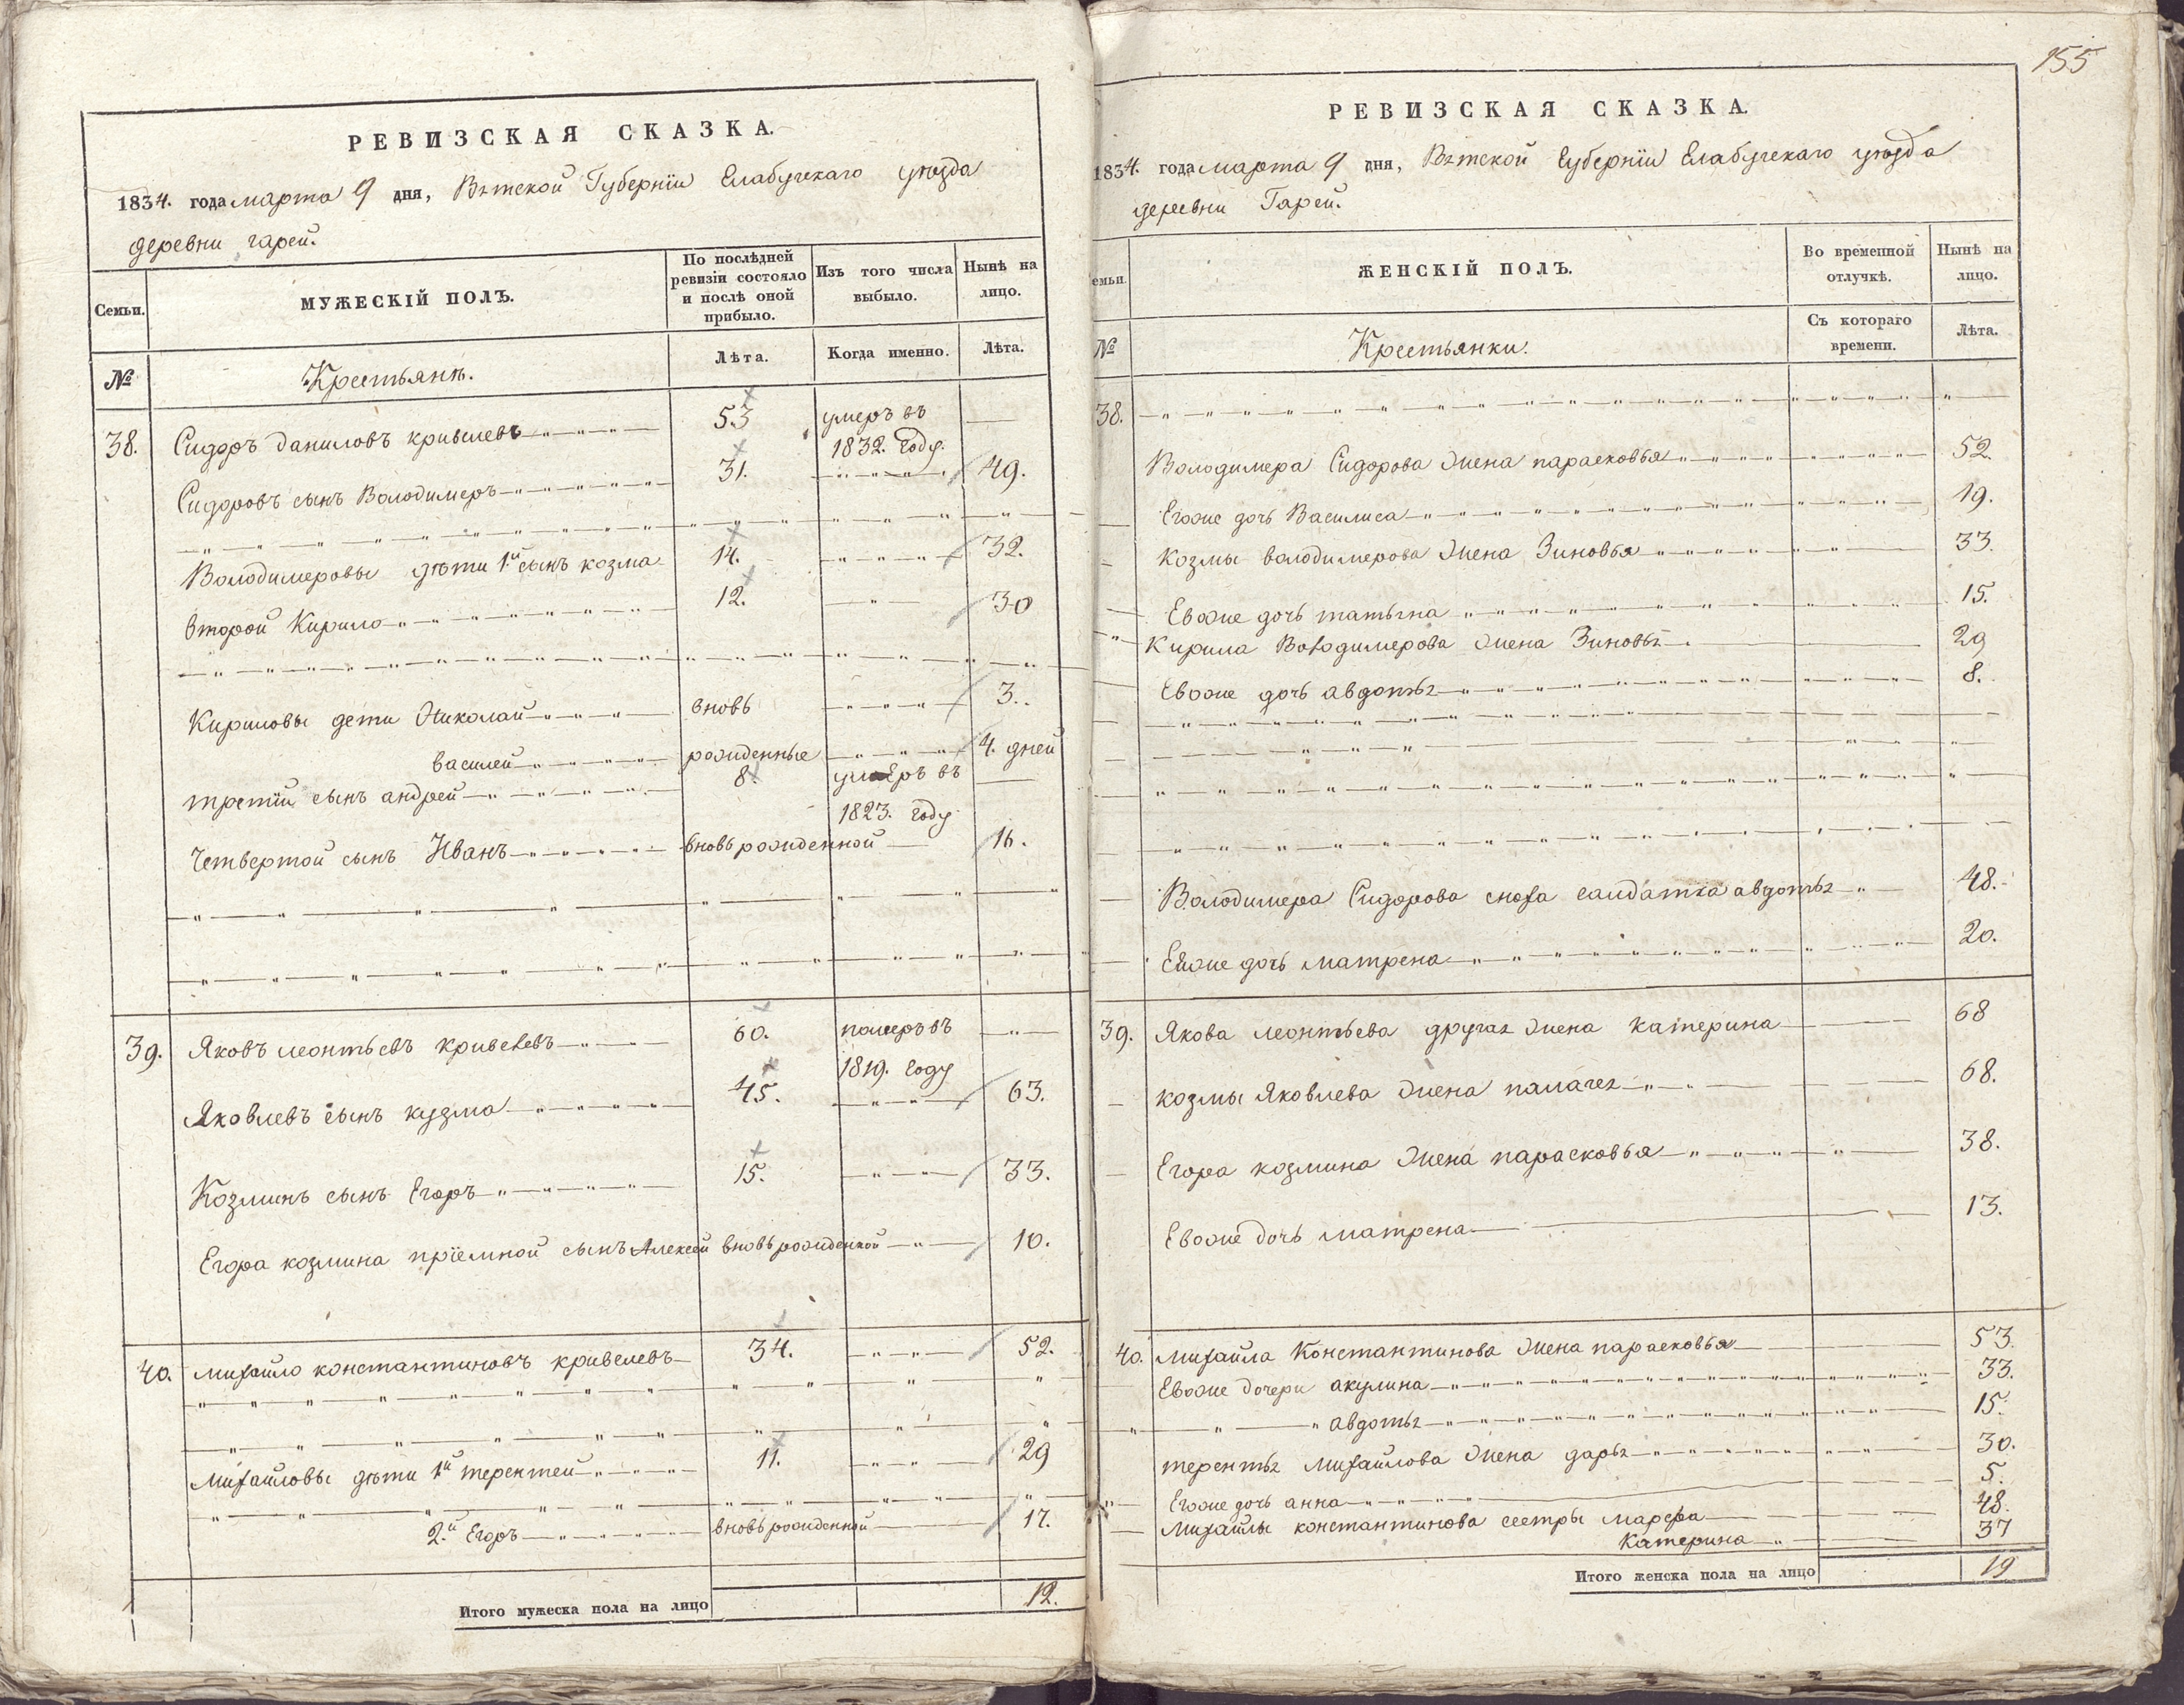 РЕВИЗСКАЯ СКАЗКА.
1834. года марта 9 дня, Вятской Губернiи Елабугскаго уѣзда
деревни гарей.
Семьи.
МУЖЕСКIЙ ПОЛЪ.
По послѣдней ревизiи состояло и послѣ оной прибыло.
Изъ того числа выбыло.
Нынѣ на лицо.
№
Крестьянѣ.
Лѣта.
Когда именно.
Лѣта.
38. Сидоръ даниловъ кривелевъ 53 умеръ въ
1832. году.
Сидоровъ сынъ Володимеръ 31. 49.
Володимеровы дѣти 1й сынъ козма 14. 32.
второй Кирило 12. 30
Кириловы дети Николай вновь 3.
василей рожденные 4. дней
третiй сынъ андрей 8. умеръ въ
1823. году
Четвертой сынъ Иванъ вновь рожденной 16.
39. Яковъ леонтьевъ кривелевъ 60. померъ въ
1819. году
Яковлевъ сынъ кузма 45. 63.
Козминъ сынъ Егоръ 15. 33.
Егора козмина прiемной сынъ Алексей вновь рожденной 10.
40. михайло константиновъ кривелевъ 34. 52.
михайловы дѣти 1й терентей 11. 29
2.й Егоръ вновь рожденной 17.
Итого мужеска пола на лицо 12.
155
РЕВИЗСКАЯ СКАЗКА.
1834. года марта 9 дня, Вятской Губернiи Елабугскаго уѣзда
деревни Гарей.
емьи.
ЖЕНСКIЙ ПОЛЪ.
Во временной отлучкѣ.
Нынѣ на лицо.
№
Крестьянки.
Съ котораго времени.
Лѣта.
38.
Володимера Сидорова жена парасковья 52.
Егоже дочь Василиса 19.
Козмы володимерова жена Зиновья 33.
Евоже дочь татьяна 15.
Кирила Володимерова жена Зиновья 29
Евоже дочь авдотья 8.
Володимера Сидорова сноха салдатка авдотья 48.
Еіоже дочь матрена 20.
39. Якова леонтьева другая жена катерина 68
козмы Яковлева жена палагея 68.
Егора козмина жена парасковья 38.
Евоже дочь матрена 13.
40. михайла Константинова жена парасковья 53.
Евоже дочери акулина 33.
авдотья 15.
терентья михайлова жена дарья 30.
Егоже дочь анна 5.
михайлы константинова сестры марфа 48.
Катерина 37
Итого женска пола на лицо 19